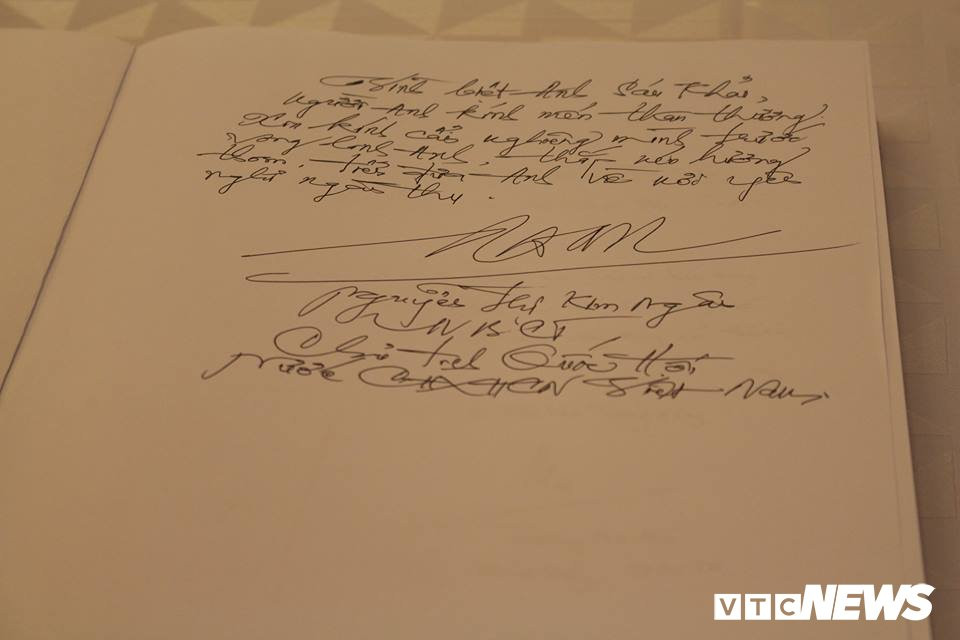 Vĩnh biệt Anh Sáu Khải,
người Anh kính mến thân thương.
Xin kính cẩn nghiêng mình trước
vong linh Anh, thắp nén hương
thơm, tiễn đưa Anh về nơi yên
nghỉ ngàn thu.
Nguyễn Thị Kim Ngân
UVBCT,
Chủ tịch Quốc Hội
Nước CHXHCN Việt Nam.
VTC NEWS